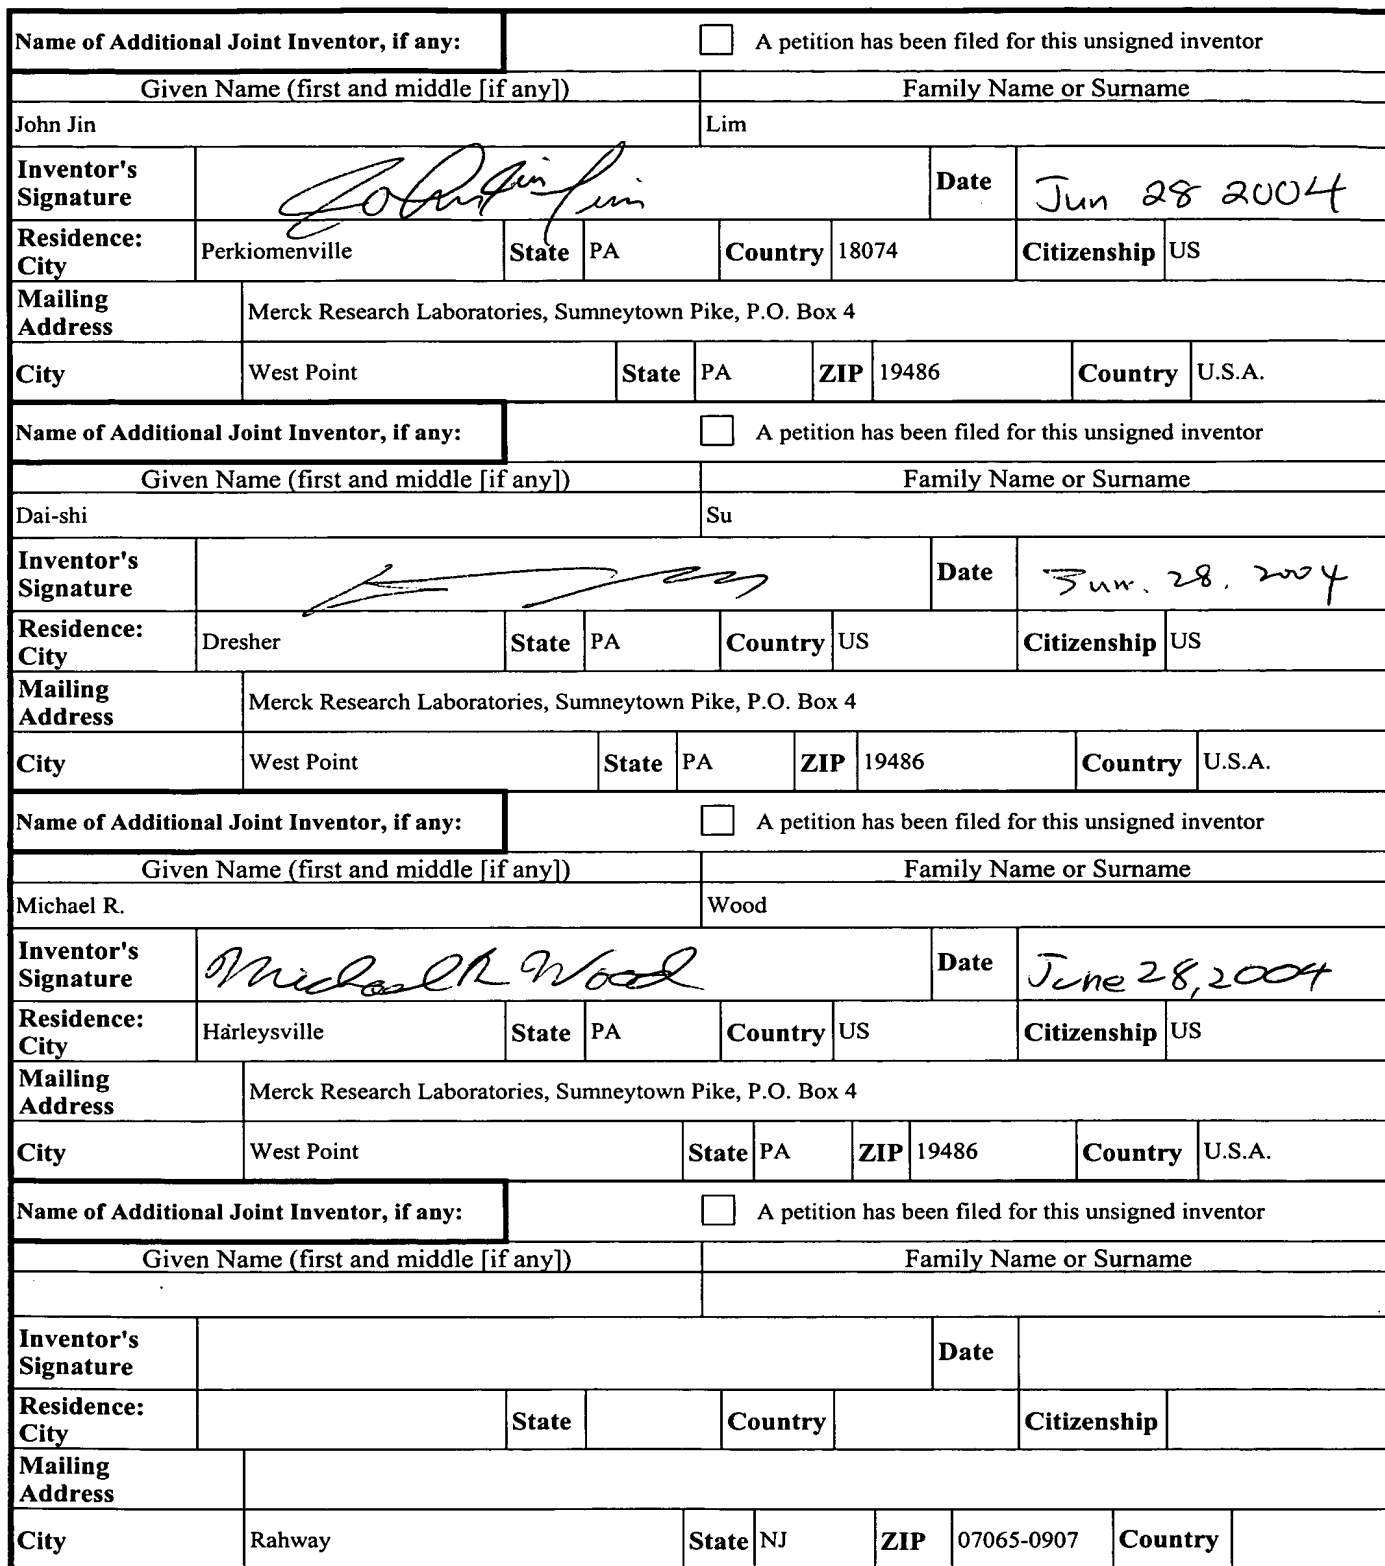 Name of Additional Joint Inventor, if any: A petition has been filed for this unsigned inventor
Given Name (first and middle [if any]) Family Name or Surname
John Jin Lim
Inventor's Signature John Jin Lim Date Jun 28 2004
Residence: City Perkiomenville State PA Country 18074 Citizenship US
Mailing Address Merck Research Laboratories, Sumneytown Pike, P.O. Box 4
City West Point State PA ZIP 19486 Country U.S.A.
Name of Additional Joint Inventor, if any: A petition has been filed for this unsigned inventor
Given Name (first and middle [if any]) Family Name or Surname
Dai-shi Su
Inventor's Signature Date Jun. 28. 2004
Residence: City Dresher State PA Country US Citizenship US
Mailing Address Merck Research Laboratories, Sumneytown Pike, P.O. Box 4
City West Point State PA ZIP 19486 Country U.S.A.
Name of Additional Joint Inventor, if any: A petition has been filed for this unsigned inventor
Given Name (first and middle [if any]) Family Name or Surname
Michael R. Wood
Inventor's Signature Michael R Wood Date June 28, 2004
Residence: City Harleysville State PA Country US Citizenship US
Mailing Address Merck Research Laboratories, Sumneytown Pike, P.O. Box 4
City West Point State PA ZIP 19486 Country U.S.A.
Name of Additional Joint Inventor, if any: A petition has been filed for this unsigned inventor
Given Name (first and middle [if any]) Family Name or Surname
Inventor's Signature Date
Residence: City State Country Citizenship
Mailing Address
City Rahway State NJ ZIP 07065-0907 Country